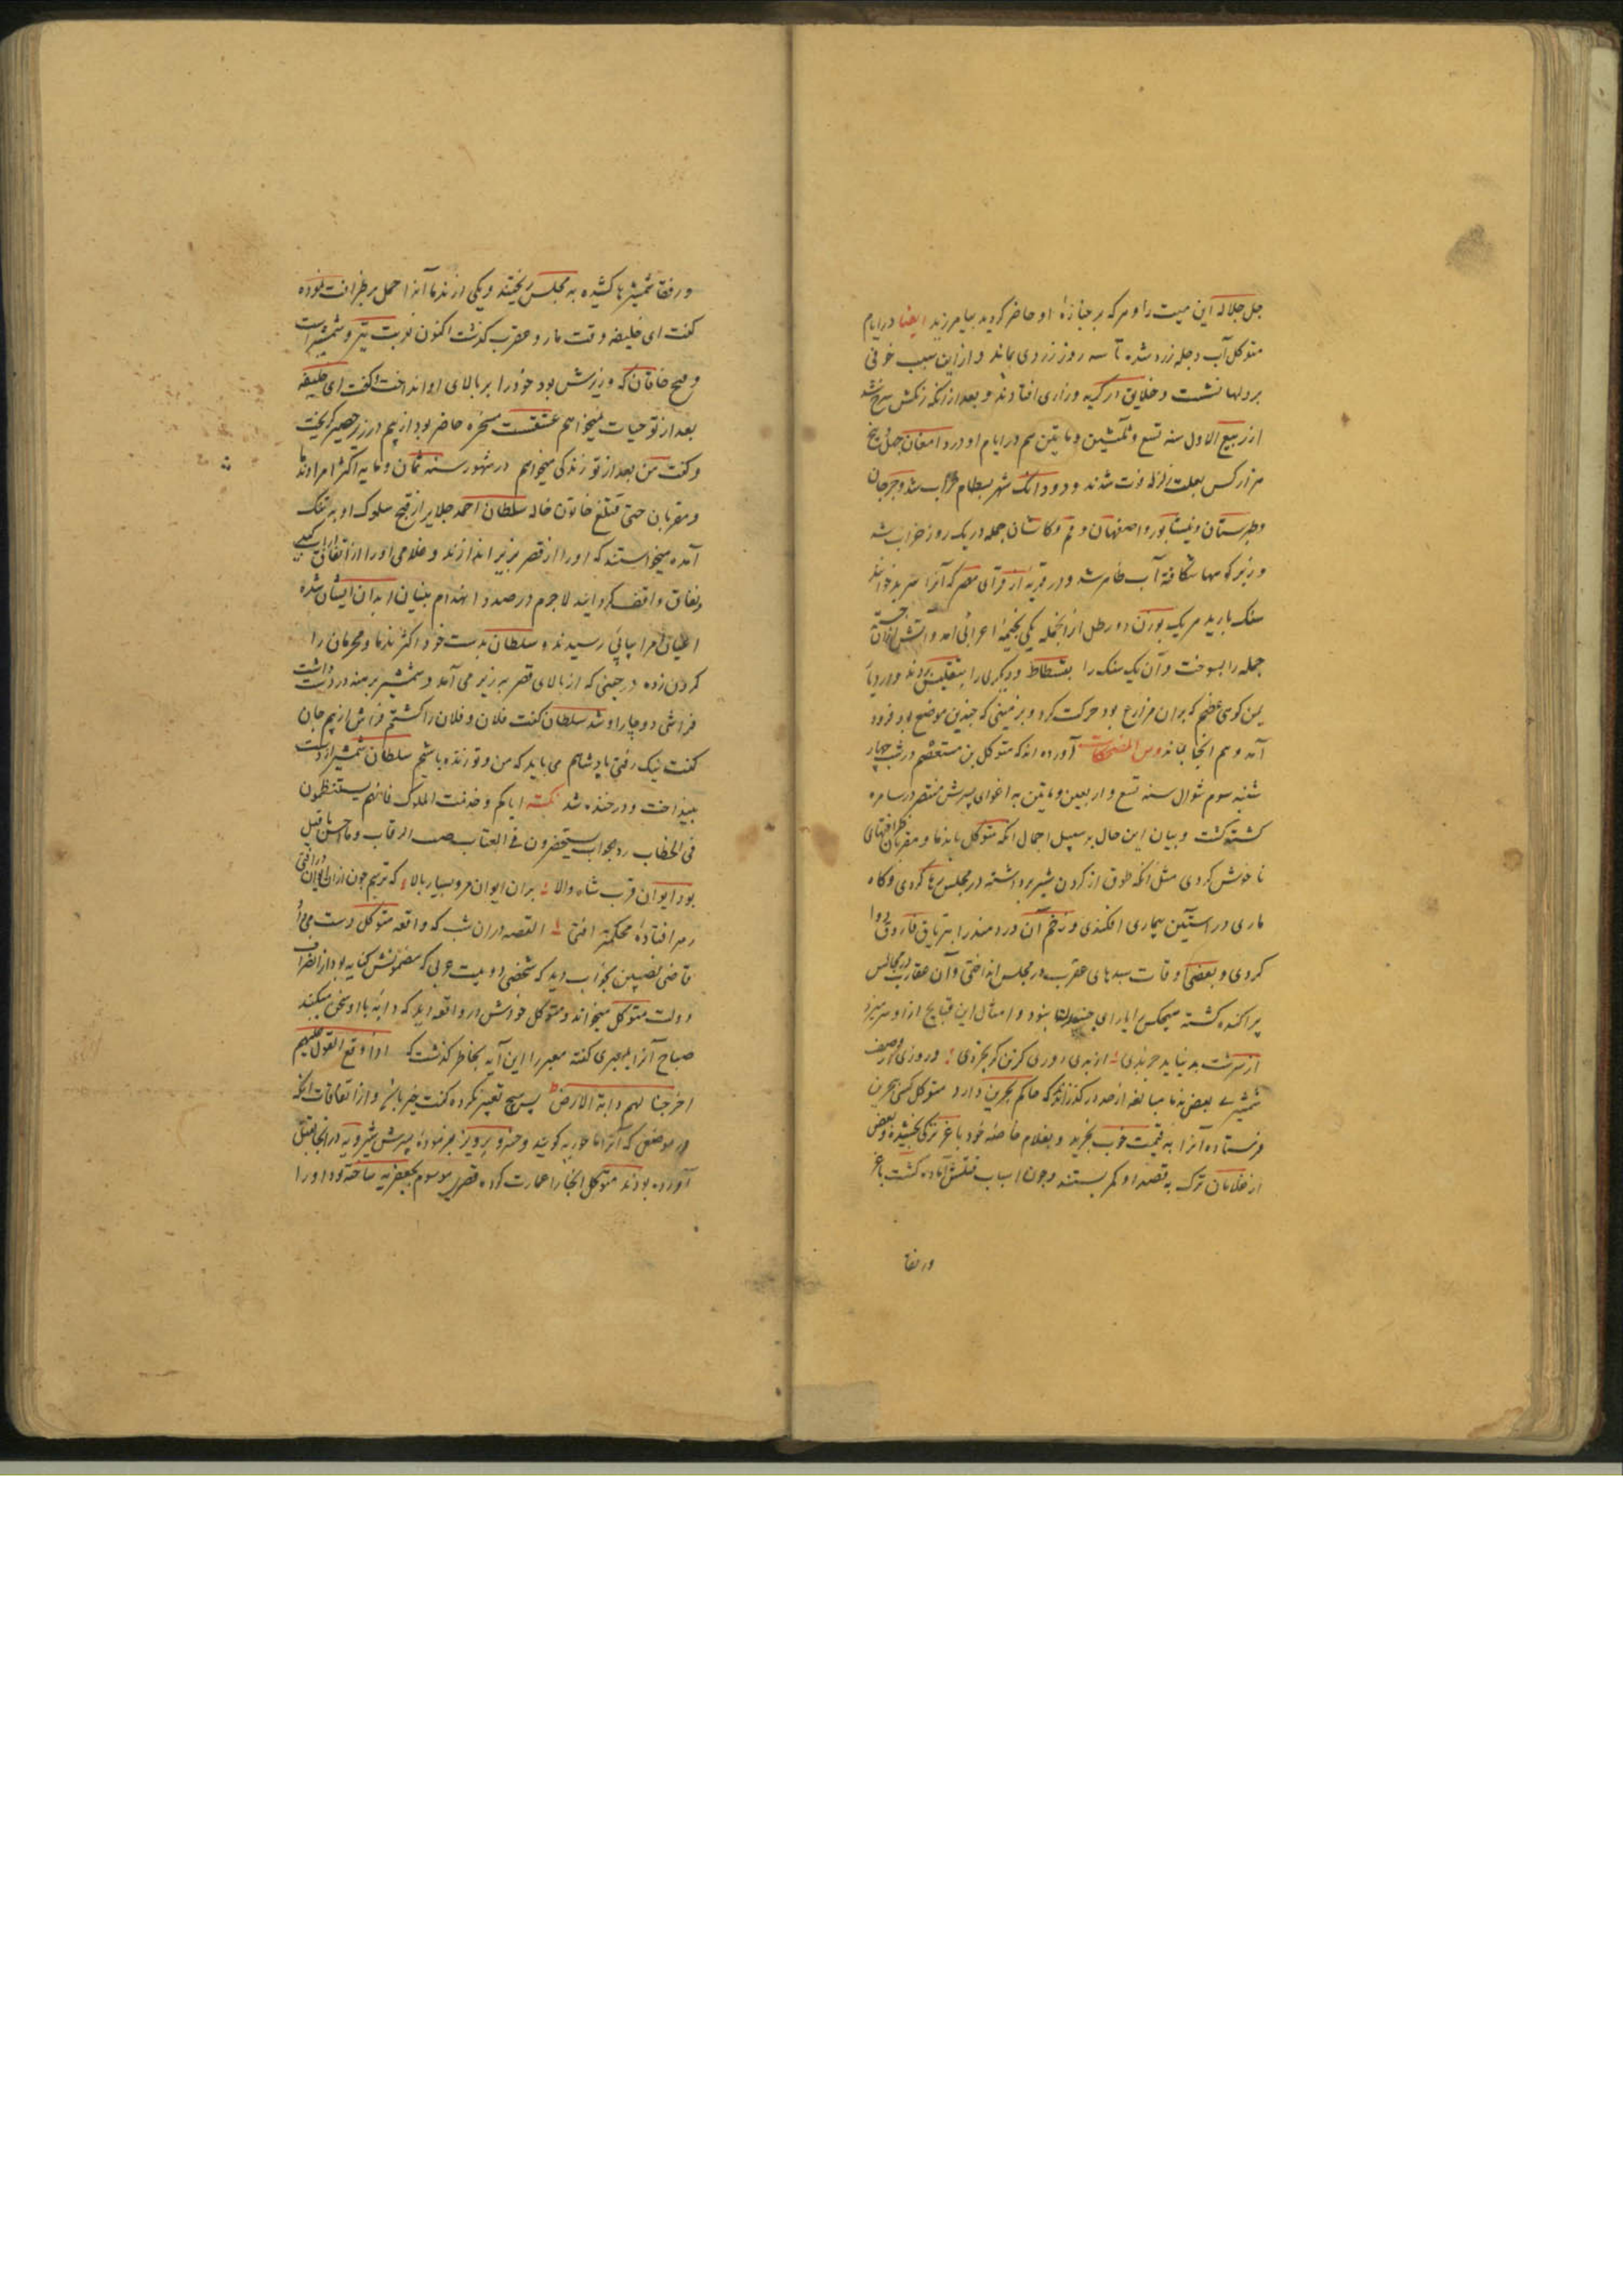 جل جلاله این میت را و هرکه بر جنازهٔ او حاضر کردید بیامرزید ایضا در ایام
متوکل آب دجله زرد شد تا سه روز زردی بماند و ازین سبب خوفی
بردلها نشست و خلایق در کریه و زاری افتادند و بعد از انکه زنکش سرخ شد
از ربیع الاول سنه تسع و ثلثین و مایتین هم در ایام او در دامغان چهل و پنج
هزار کس بعلت زلزله فوت شدند و دودانک شهر بسطام خراب شد و جرجان
و طبرستان و نیشابور و اصفهان و قم و کاشان جمله در یک روز خراب شد
و زیر کوهها شکافته آب ظاهر شد و در قریه از قرآی مصر که آنرا خوانند
سنک بارید هر یک بوزن دو رطل از انجمله یکی بخیمهٔ اعرابی آمد و آتش ازان جسته
جمله را بسوخت و آن یک سنک را بفسطاط و دیکری را بتفلیس بردند و در دیار
یمن کوهی ضخیم که بران مزارع بود حرکت کرد و بزمینی که چندین موضع بود فرود
آمد و هم انجا بماند ومن المضحکات آورده اند که متوکل بن معتصم در شب چهار
شنبه سوم شوال سنه تسع و اربعین و مایتین به اغوای پسرش منتصر در سامره
کشته کشت و بیان این حال بر سبیل اجمال انکه متوکل با ندما و مقربان ظرافتهای
ناخوش کردی مثل انکه طوق از کردن شیر برداشته در مجلس رها کردی و کاه
ماری در آستین بیماری افکندی و زخم آن دردمند را بتریاق فاروق دوا
کردی و بعضی اوقات سبدهای عقرب در مجلس انداختی و آن عقارب در مجالس
پراکنده کشته هیچکس را یارای نبود و امثال این قبایح ازو سر میزد
از سرشت بد نیاید جز بدی از بدی دوری کزین کر بخردی و روزی در وصف
شمشیری بعض ندما مبالغه از حد در کذرانید که حاکم بحرین دارد متوکل کسی ببحرین
فرستاده آنرا به قیمت خوب بخرید و بغلام خاصه خود باغر ترکی بخشیده و بعض
از غلامان ترک به قصد او کمر بستند و چون اسباب قتلش آماده کشت باغر
ورفقا
ورفقا شمشیرها کشیده به مجلس ریختند و یکی از ندما آنرا حمل بر ظرافت نموده
کفت ای خلیفه وقت مار و عقرب کذشت اکنون نوبت تیر و شمشیر است
و فتح خاقان که وزیرش بود خود را بر بالای او انداخت و کفت ای خلیفه
بعد از تو حیات نمیخواهم مسخره حاضر بود از بیم در زیر حصیر کریخت
و کفت من بعد از تو زندکی میخواهم در شهور سنه ثمان و مایه اکثر امرا و ندما
و مقربان حتی قتلغ خاتون خاله سلطان احمد جلایر از قبح سلوک او به تنک
آمده میخواستند که او را از قصر بزیر اندازند و غلامی او را از اتفاق
نفاق واقف کردانید لاجرم در صدد انهدام بنیان ابدان ایشان شده
اعیان امرا بیاسا رسیدند و سلطان بدست خود اکثر ندما و محرمان را
کردن زده در حینی که از بالای قصر به زیر می آمد و شمشیر برهنه در دست داشت
فراشی دوچار او شد سلطان کفت فلان و فلان را کشتم فراش از بیم جان
کفت نیک رفتی پادشاهم می باید که من و تو زنده باشیم سلطان شمشیر از دست
بینداخت و در خنده شد نکته ایاکم و خدمت الملوک فانهم یستعظمون
فی الخطاب رد الجواب و یستحقرون فی العتاب ضرب الرقاب و ما احسن ما قیل
بود ایوان قرب شاه والا بران ایوان مرو بسیار بالا که ترسم چون ازان ایوان درافتی
ز هر افتادهٔ محکمتر افتی القصه دران شب که واقعه متوکل دست میداد
قاضی نصیبین بخواب دید که شخصی دو بیت عربی که مضمونش کنایه بود از انصراف
دولت متوکل میخواند و متوکل خودش در واقعه دید که دابه با او سخن میکند
صباح آنرا بمعبری کفته معبر را این آیه بخاطر کذشت که اذا وقع القول علیهم
اخرجنا لهم دابة الارض پس هیچ تعبیر نکرده کفت خیر باشد و از اتفاقات انکه
در موضعی که آنرا ماحوزیه کویند و خسرو پرویز به فرمودهٔ پسرش شیرویه در انجا بقتل
آورده بودند متوکل انجا را عمارت کرده قصری موسوم بجعفریه ساخته بود او را